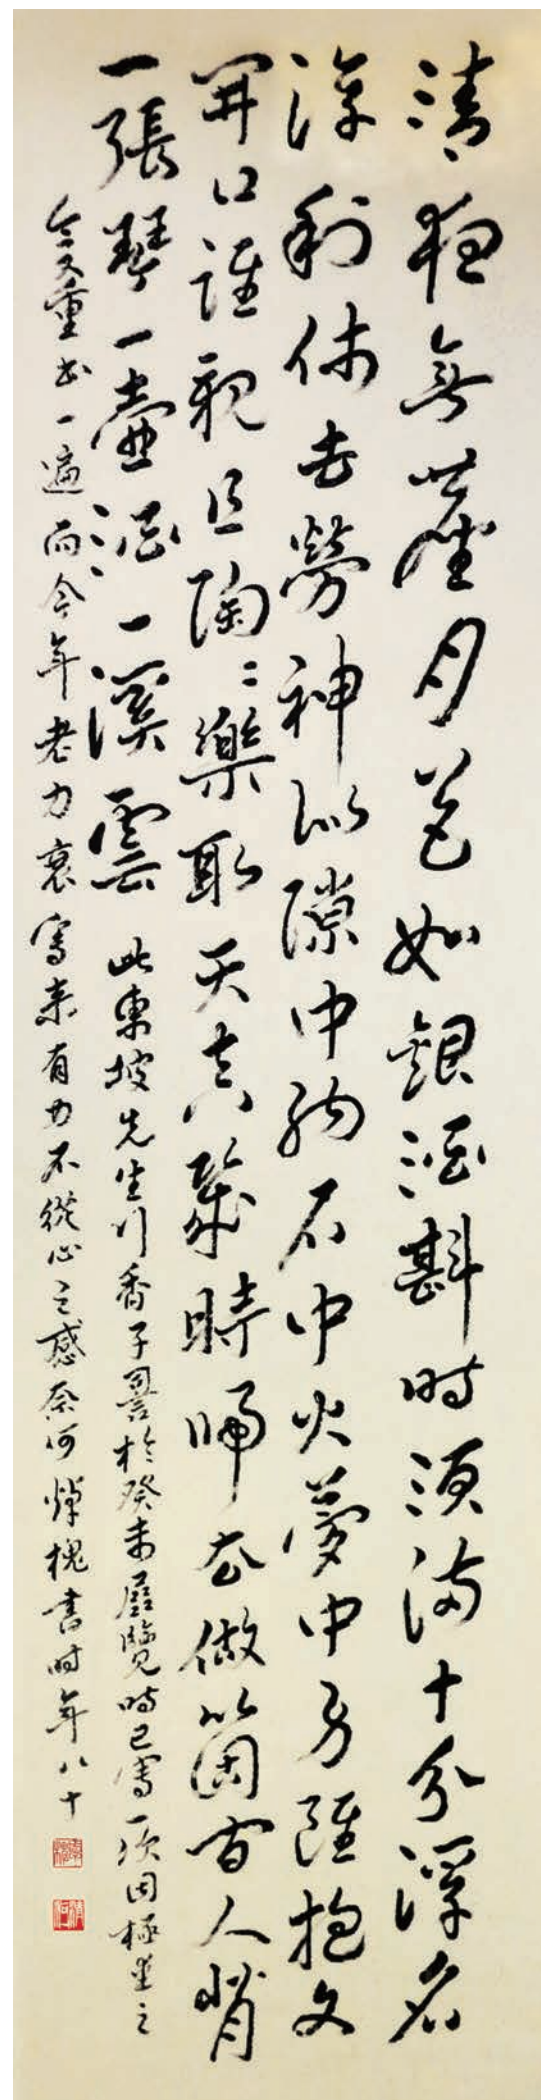 清夜無塵月色如銀酒斟時須滿十分浮名
浮利休苦勞神似隙中駒石中火夢中身雖抱文
開口誰親且陶〻樂取天真幾時歸去做箇閒人背
一張琴一壺酒一溪雲 此東坡先生行香子於癸未展覽時已寫一次因極喜之
今又重書一遍而今年老力衰寫來有力不從心之感奈何 焯槐書時年八十